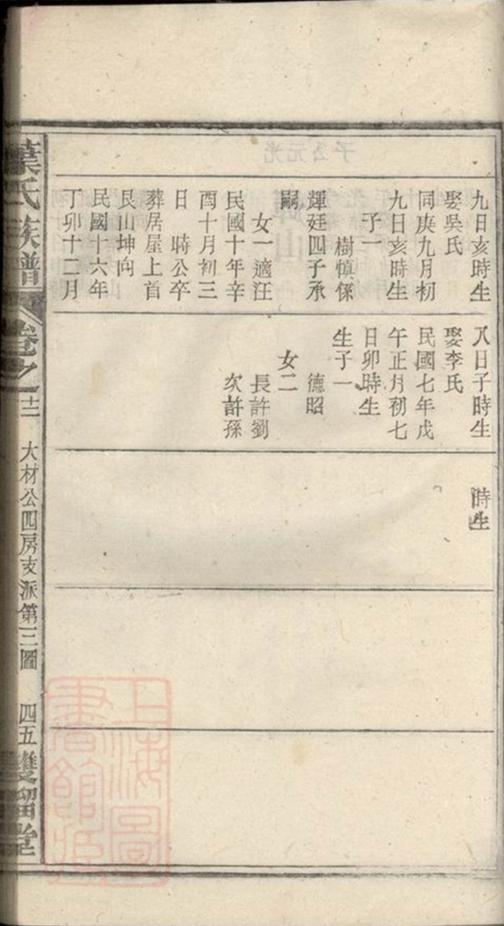 九日亥時生
娶吳氏
同庚九月初
九日亥時生
子一
樹慎係
輝廷四子承
嗣
女一適汪
民國十年辛
酉十月初三
日時公卒
葬居屋上首
艮山坤向
民國十六年
丁卯十二月
八日子時生
娶李氏
民國七年戊
午正月初七
日卯時生
生子一
德昭
女二
長許劉
次許孫
時生
葉氏族譜
卷之十二
大材公四房支派第三圖
四五
雙留堂
上海圖書館藏